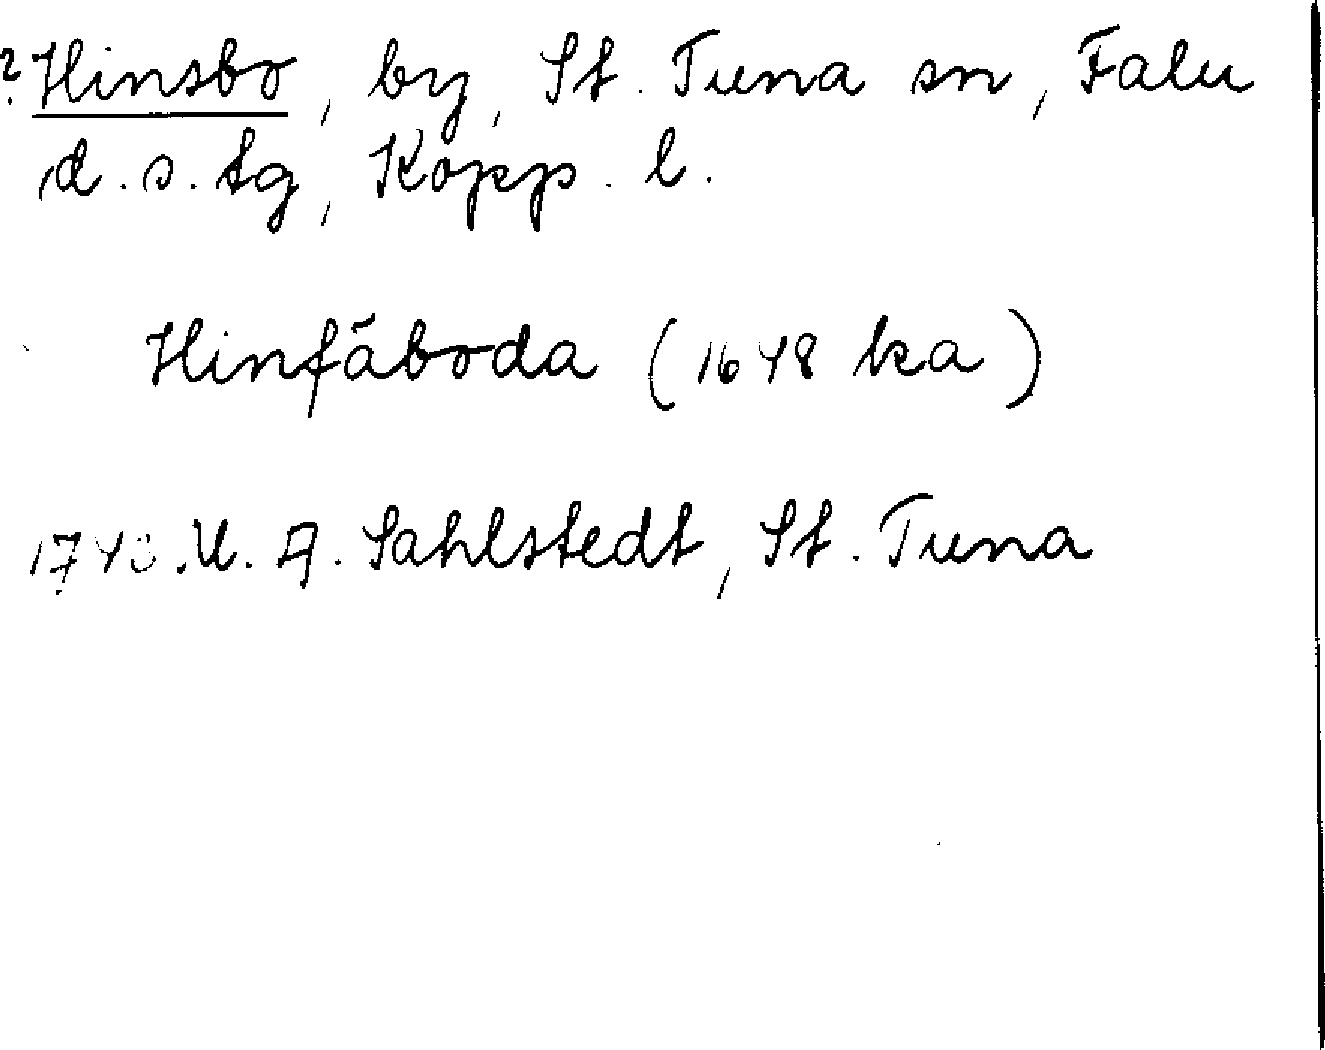 ? Hinsbo, by, St. Tuna sn, Falu
d. s. tg, Kopp. l.
Hinfäboda (1648 ka)
1743. U. A. Sahlstedt, St. Tuna